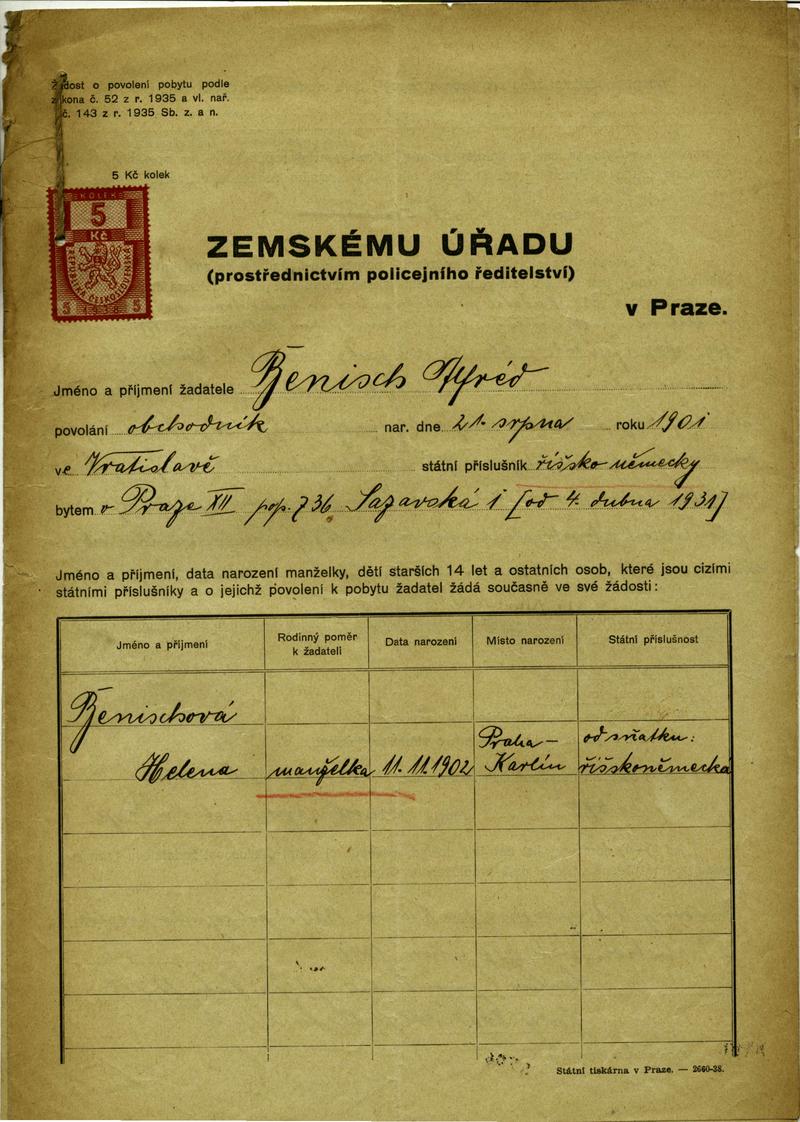 Žádost o povolení pobytu podle
zákona č. 52 z r. 1935 a vl. nař.
č. 143 z r. 1935 Sb. z. a n.
5 Kč kolek
KOLEK
5
Kč
REPUBLIKA ČESKOSLOVENSKÁ
5 1938 5
ZEMSKÉMU ÚŘADU
(prostřednictvím policejního ředitelství)
v Praze.
Jméno a příjmení žadatele Benisch Alfréd
povolání obchodník nar. dne 21. srpna roku 1901
ve Vratislavě státní příslušník říšsko německý
bytem v Praze XII pop. 736 Sázavská 1 [od 4. dubna 1931]
Jméno a příjmení, data narození manželky, dětí starších 14 let a ostatních osob, které jsou cizími
státními příslušníky a o jejichž povolení k pobytu žadatel žádá současně ve své žádosti:
Jméno a příjmení Rodinný poměr k žadateli Data narození Místo narození Státní příslušnost
Benischová
Helena manželka 11. 11. 1902 Praha - Karlín od sňatku: říšskoněmecká
Státní tiskárna v Praze. — 2660-38.